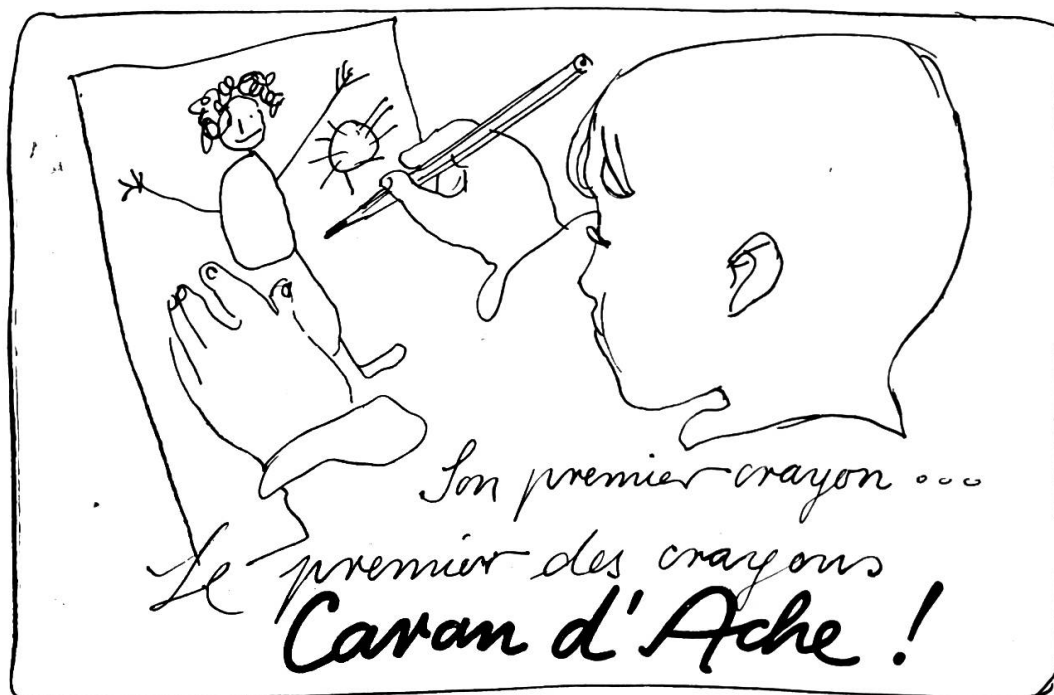 Son premier crayon...
Le premier des crayons
Caran d'Ache !